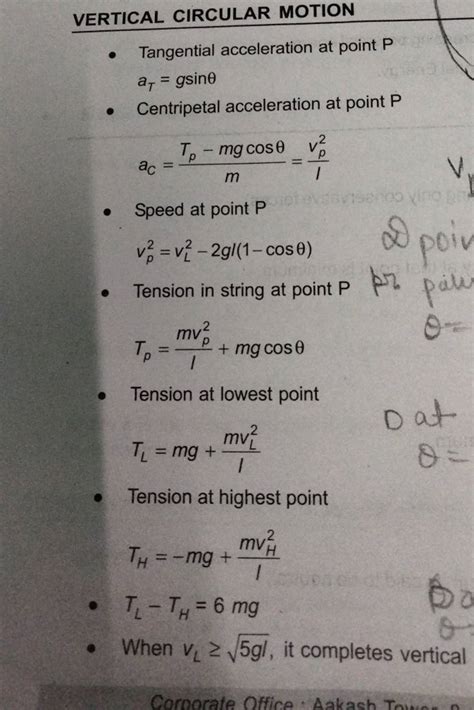 VERTICAL CIRCULAR MOTION
• Tangential acceleration at point P
a_T = gsinθ
• Centripetal acceleration at point P
a_C = (T_p – mg cosθ)/m = v_p²/l
• Speed at point P
v_p² = v_L² – 2gl(1– cosθ)
• Tension in string at point P
T_p = mv_p²/l + mg cosθ
θ=
• Tension at lowest point
D at
T_L = mg + mv_L²/l
θ=
• Tension at highest point
T_H = –mg + mv_H²/l
• T_L – T_H = 6 mg
• When v_L ≥ √5gl, it completes vertical
Corporate Office : Aakash Tower